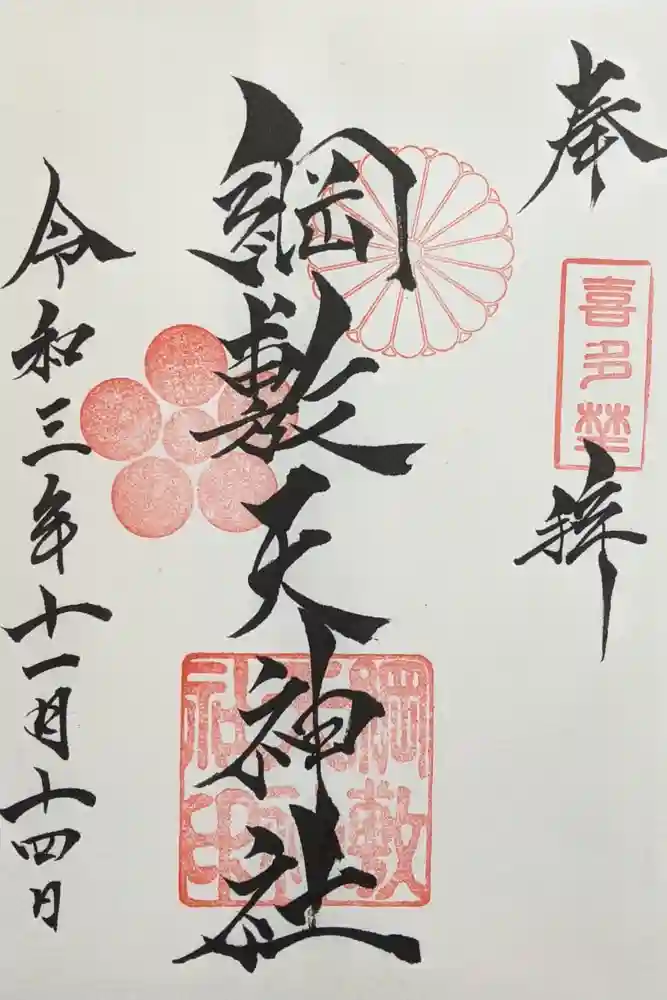 奉拝
喜多埜
綱敷天神社
綱敷天神社印
令和三年十一月十四日